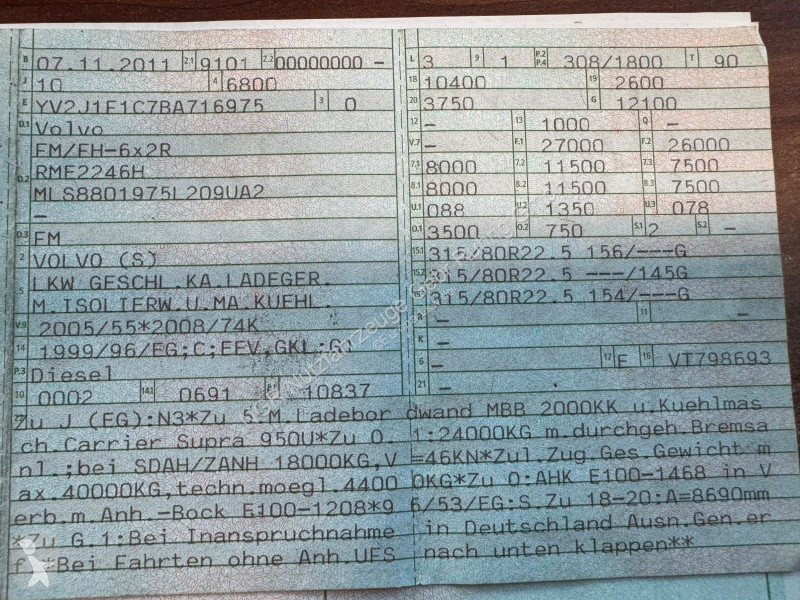 B 07.11.2011 2.1 9101 2.2 00000000 -
J 10 4 6800
E YV2J1F1C7BA716975 3 0
D.1 Volvo
FM/FH-6x2R
D.2 RMF2246H
MLS8801975L209UA2
-
D.3 FM
2 VOLVO (S)
5 LKW GESCHL.KA.LADEGER.
M.ISOLIERW.U.MA.KUEHL.
V.9 2005/55*2008/74K
14 1999/96/EG;C;EEV,GKL:G1
P.3 Diesel
10 0002 14.1 0691 P.1 10837
L 3 9 1 P.2 P.4 308/1800 T 90
18 10400 19 2600
20 3750 G 12100
12 - 13 1000 Q -
V.7 - F.1 27000 F.2 26000
7.1 8000 7.2 11500 7.3 7500
8.1 8000 8.2 11500 8.3 7500
U.1 088 U.2 1350 U.3 078
O.1 3500 O.2 750 S.1 2 S.2 -
15.1 315/80R22.5 156/---G
15.2 315/80R22.5 ---/145G
15.3 315/80R22.5 154/---G
R - 11 -
K -
6 - 17 E 16 VT798693
21 -
22 Zu J (EG):N3*Zu 5 M.Ladebor dwand MBB 2000KK u.Kuehlmas
ch.Carrier Supra 950U*Zu O. 1:24000KG m.durchgeh.Bremsa
nl.;bei SDAH/ZANH 18000KG,V =46KN*Zul.Zug.Ges.Gewicht m
ax.40000KG,techn.moegl.4400 0KG*Zu O:AHK E100-1468 in V
erb.m.Anh.-Bock E100-1208*9 6/53/EG:S.Zu 18-20:A=8690mm
*Zu G.1:Bei Inanspruchnahme in Deutschland Ausn.Gen.er
f.*Bei Fahrten ohne Anh.UFS nach unten klappen**